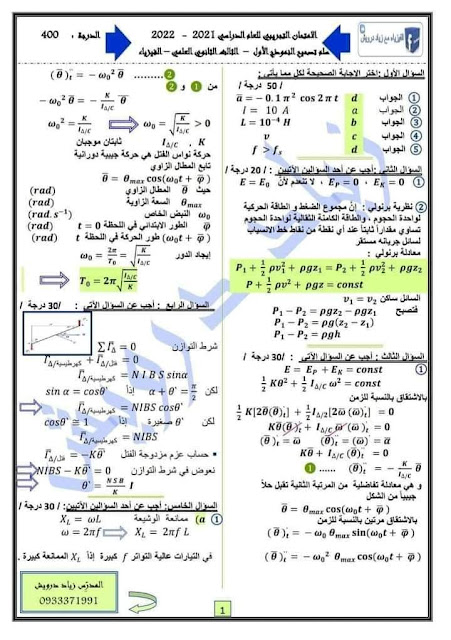 الامتحان التجريبي للعام الدراسي 2021 - 2022
سلم تصحيح النموذج الأول - الثالث الثانوي العلمي - الفيزياء
الدرجة : 400
السؤال الأول : اختر الإجابة الصحيحة لكل مما يأتي :
/ 50 درجة /
① الجواب d a̅ = − 0.1 π² cos 2π t
② الجواب a I = 10 A
③ الجواب b L = 10⁻⁴ H
④ الجواب c v
⑤ الجواب d f > fₛ
السؤال الثاني : أجب عن أحد السؤالين الآتيين : / 20 درجة /
① E_K = 0 , E_P = 0 , لا تنعدم لأنّ E = E₀
② نظرية برنولي : إنّ مجموع الضغط والطاقة الحركية
لواحدة الحجوم ، والطاقة الكامنة الثقالية لواحدة الحجوم
تساوي مقداراً ثابتاً عند أي نقطة من نقاط خط الانسياب
لسائل جريانه مستقر
معادلة برنولي :
P₁ + ½ ρv₁² + ρgz₁ = P₂ + ½ ρv₂² + ρgz₂
P + ½ ρv² + ρgz = const
السائل ساكن v₁ = v₂
فتصبح P₁ − P₂ = ρgz₂ − ρgz₁
P₁ − P₂ = ρg(z₂ − z₁)
P₁ − P₂ = ρgh
السؤال الثالث : أجب عن السؤال الآتي : / 30 درجة /
① E = E_P + E_K = const
½ Kθ̅² + ½ I_Δ/C ω̅² = const
بالاشتقاق بالنسبة للزمن
½ K[2θ̅(θ̅)'ₜ] + ½ I_Δ/C[2ω̅ (ω̅)'ₜ] = 0
Kθ̅(θ̅)'ₜ + I_Δ/C ω̅ (ω̅)'ₜ = 0
(θ̅)'ₜ = ω̅ (ω̅)'ₜ = (θ̅)''ₜ = α̅
Kθ̅ + I_Δ/C (θ̅)''ₜ = 0
(θ̅)''ₜ = − K/I_Δ/C θ̅ ...... ①
و هي معادلة تفاضلية من المرتبة الثانية تقبل حلاً
جيبياً من الشكل
θ̅ = θmax cos(ω₀t + φ̅)
بالاشتقاق مرتين بالنسبة للزمن
(θ̅)'ₜ = − ω₀ θmax sin(ω₀t + φ̅)
(θ̅)''ₜ = − ω₀² θmax cos(ω₀t + φ̅)
(θ̅)''ₜ = − ω₀² θ̅ .......... ②
من ① و ②
−ω₀² θ̅ = − K/I_Δ/C θ̅
ω₀² = K/I_Δ/C ω₀ = √(K/I_Δ/C) > 0
K , I_Δ/C ثابتان موجبان
حركة نواس الفتل هي حركة جيبية دورانية
تابع المطال الزاوي
θ̅ = θmax cos(ω₀t + φ̅)
حيث θ̅ المطال الزاوي (rad)
θmax السعة الزاوية (rad)
ω₀ النبض الخاص (rad.s⁻¹)
φ̅ الطور الابتدائي في اللحظة t = 0 (rad)
(ω₀t + φ̅) طور الحركة في اللحظة t (rad)
إيجاد الدور ω₀ = 2π/T₀ = √(K/I_Δ/C)
T₀ = 2π√(I_Δ/C/K)
السؤال الرابع : أجب عن السؤال الآتي : / 30 درجة /
شرط التوازن ∑Γ̅_Δ = 0
Γ̅_Δ/كهرطيسية + Γ̅_Δ/فتل = 0
Γ̅_Δ/كهرطيسية = N I B S sinα
لكن α + θ' = π/2 إذاً sin α = cosθ'
Γ̅_Δ/كهرطيسية = NIBS cosθ'
لكن θ' صغيرة إذاً cosθ' ≅ 1
Γ̅_Δ/كهرطيسية = NIBS
حساب عزم مزدوجة الفتل Γ̅_Δ/فتل = −Kθ'
نعوض في شرط التوازن NIBS − Kθ' = 0
θ' = NSB/K I
السؤال الخامس : أجب عن أحد السؤالين الآتيين : / 30 درجة /
① a) ممانعة الوشيعة X_L = ωL
ω = 2πf X_L = 2πf L
في التيارات عالية التواتر f كبيرة إذاً X_L الممانعة كبيرة .
المدرّس زياد درويش
0933371991
1